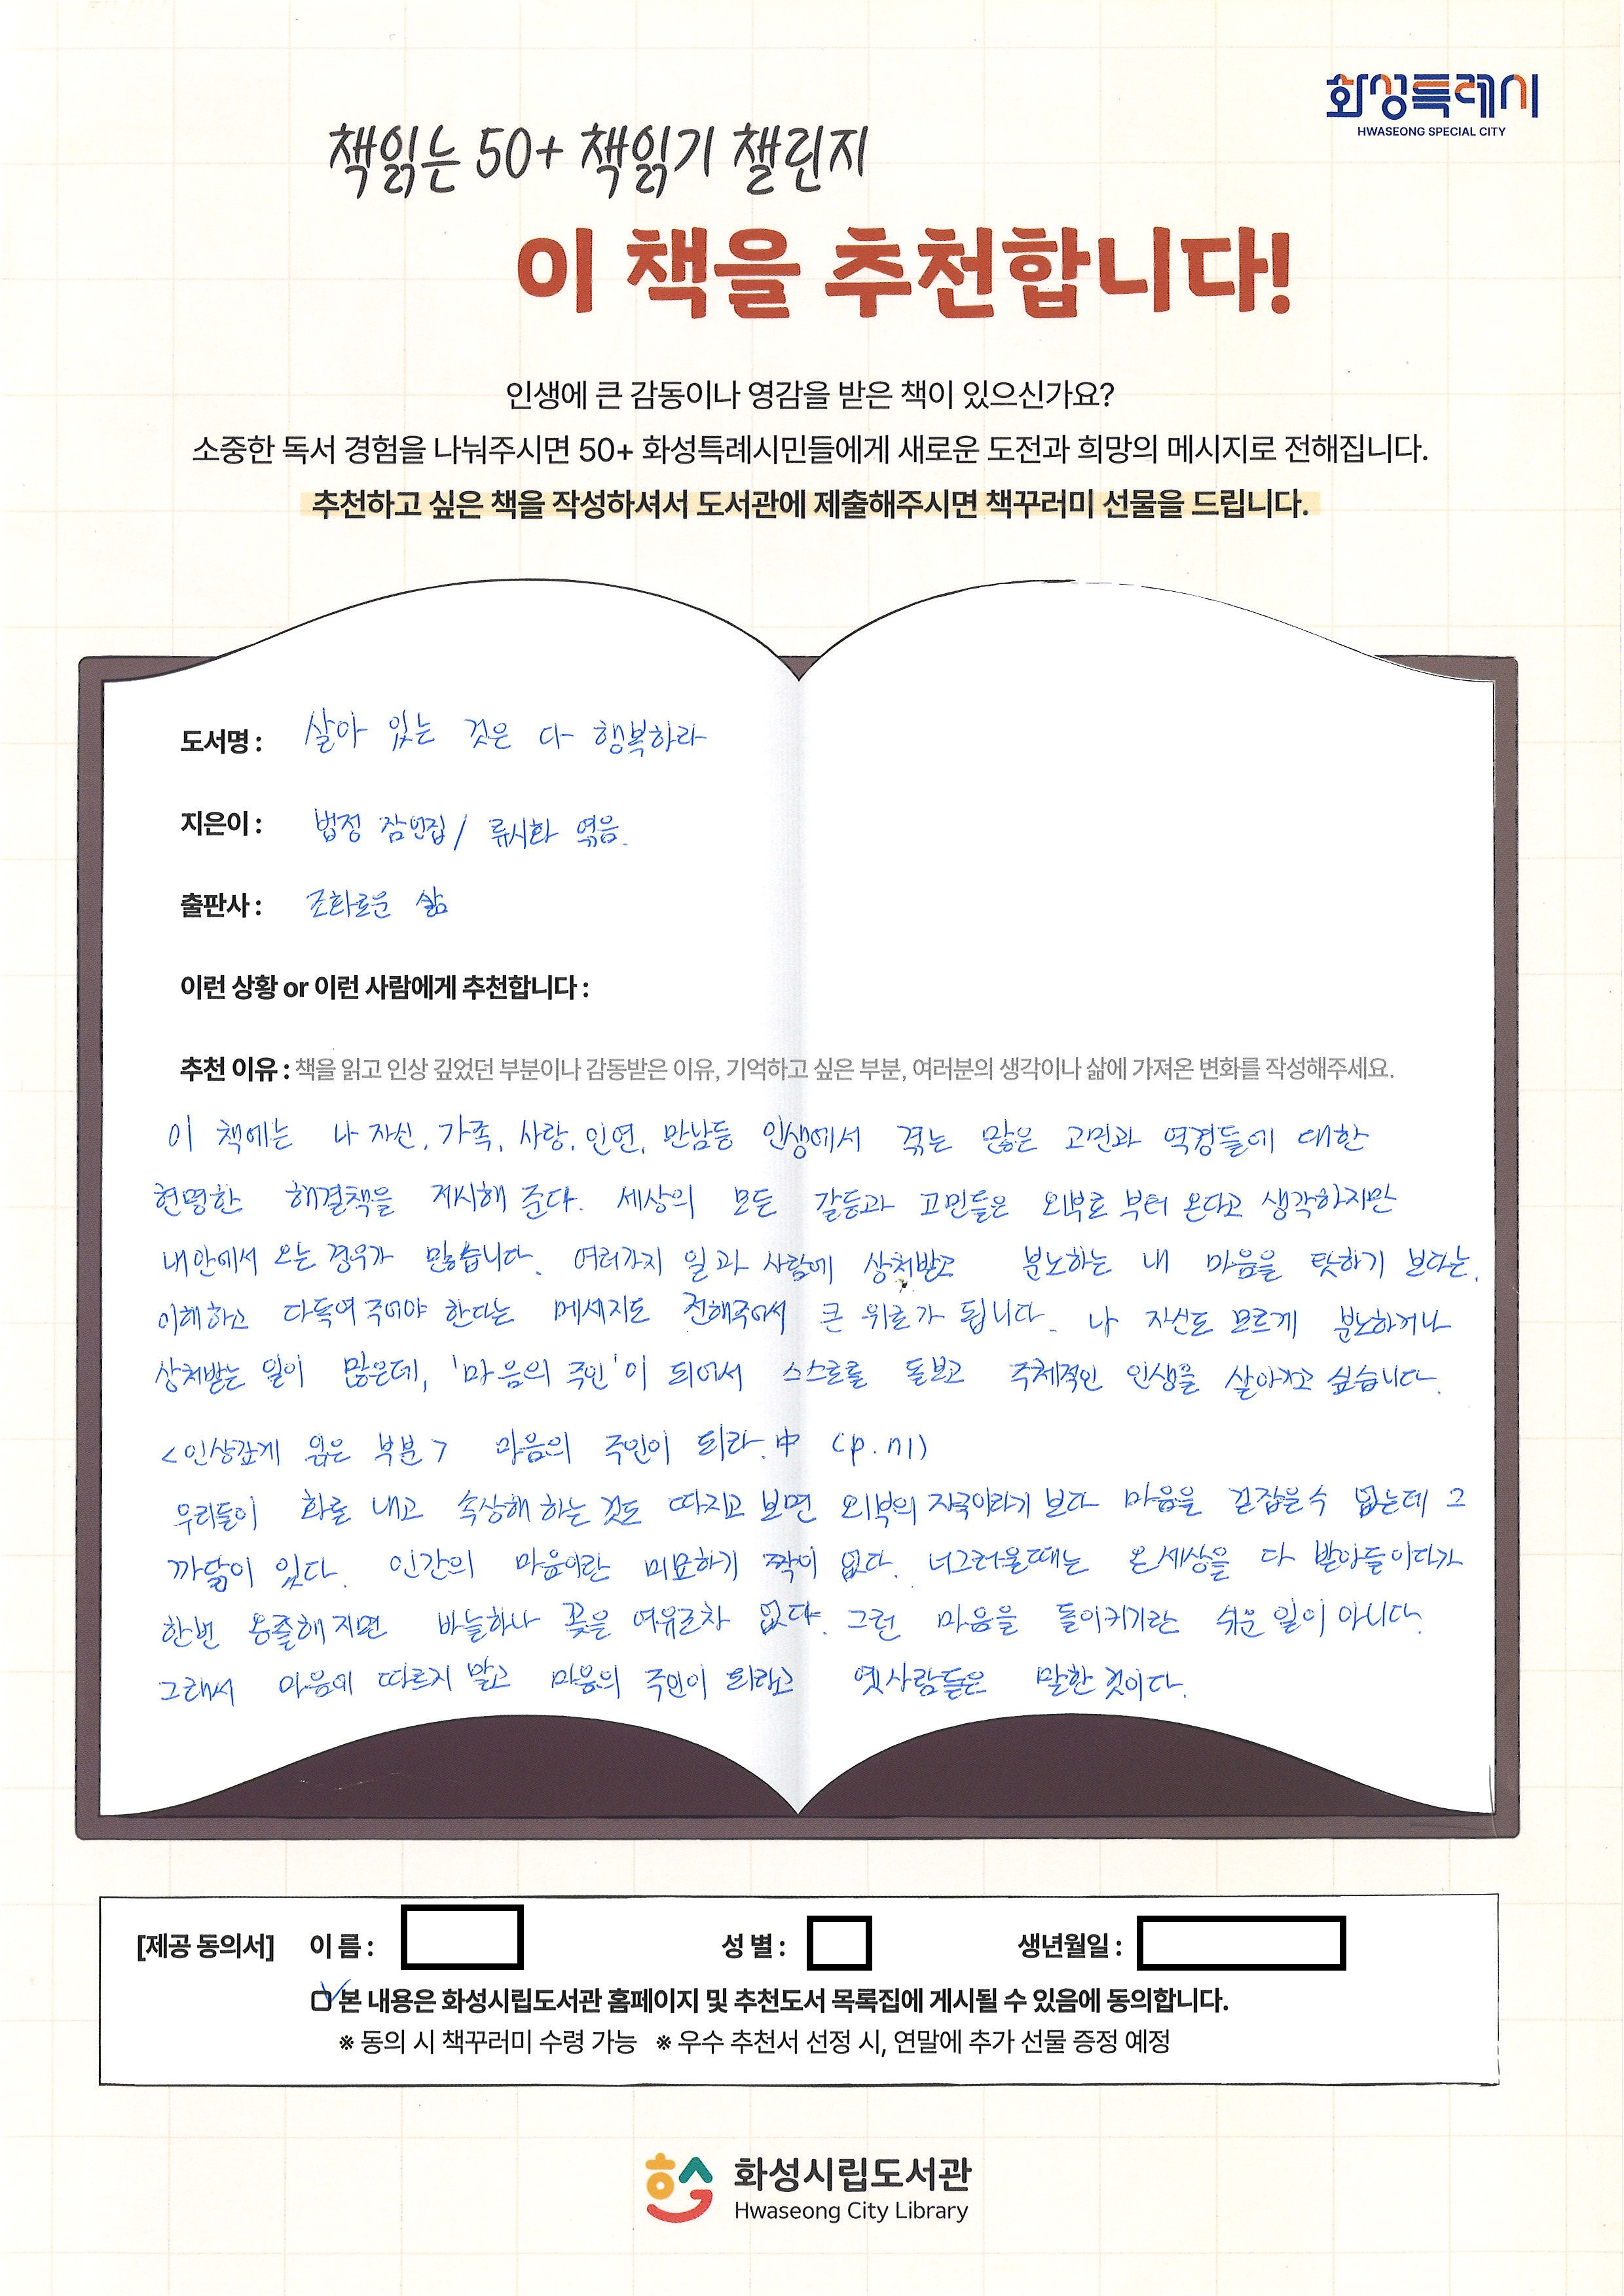 화성특례시
HWASEONG SPECIAL CITY
책읽는 50+ 책읽기 챌린지
이 책을 추천합니다!
인생에 큰 감동이나 영감을 받은 책이 있으신가요?
소중한 독서 경험을 나눠주시면 50+ 화성특례시민들에게 새로운 도전과 희망의 메시지로 전해집니다.
추천하고 싶은 책을 작성하셔서 도서관에 제출해주시면 책꾸러미 선물을 드립니다.
도서명 : 살아 있는 것은 다 행복하라
지은이 : 법정 잠언집 / 류시화 엮음.
출판사 : 조화로운 삶
이런 상황 or 이런 사람에게 추천합니다 :
추천 이유 : 책을 읽고 인상 깊었던 부분이나 감동받은 이유, 기억하고 싶은 부분, 여러분의 생각이나 삶에 가져온 변화를 작성해주세요.
이 책에는 나 자신, 가족, 사랑, 인연, 만남등 인생에서 겪는 많은 고민과 역경들에 대한
현명한 해결책을 제시해 준다. 세상의 모든 갈등과 고민들은 외부로 부터 온다고 생각하지만
내안에서 오는 경우가 많습니다. 여러가지 일과 사람에 상처받고 분노하는 내 마음을 탓하기 보다는,
이해하고 다독여 주어야 한다는 메세지도 전해주어서 큰 위로가 됩니다. 나 자신도 모르게 분노하거나
상처받는 일이 많은데, '마음의 주인'이 되어서 스스로를 돌보고 주체적인 인생을 살아가고 싶습니다.
<인상깊게 읽은 부분> 마음의 주인이 되라.中 (p.111)
우리들이 화를 내고 속상해 하는 것도 따지고 보면 외부의 자극이라기 보다 마음을 걷잡을 수 없는데 그
까닭이 있다. 인간의 마음이란 미묘하기 짝이 없다. 너그러울때는 온 세상을 다 받아들이다가
한번 옹졸해 지면 바늘하나 꽂을 여유조차 없다. 그런 마음을 돌이키기란 쉬운 일이 아니다.
그래서 마음에 따르지 말고 마음의 주인이 되라고 옛사람들은 말한 것이다.
[제공 동의서] 이 름 : 성 별 : 생년월일 :
본 내용은 화성시립도서관 홈페이지 및 추천도서 목록집에 게시될 수 있음에 동의합니다.
※ 동의 시 책꾸러미 수령 가능 ※ 우수 추천서 선정 시, 연말에 추가 선물 증정 예정
화성시립도서관
Hwaseong City Library